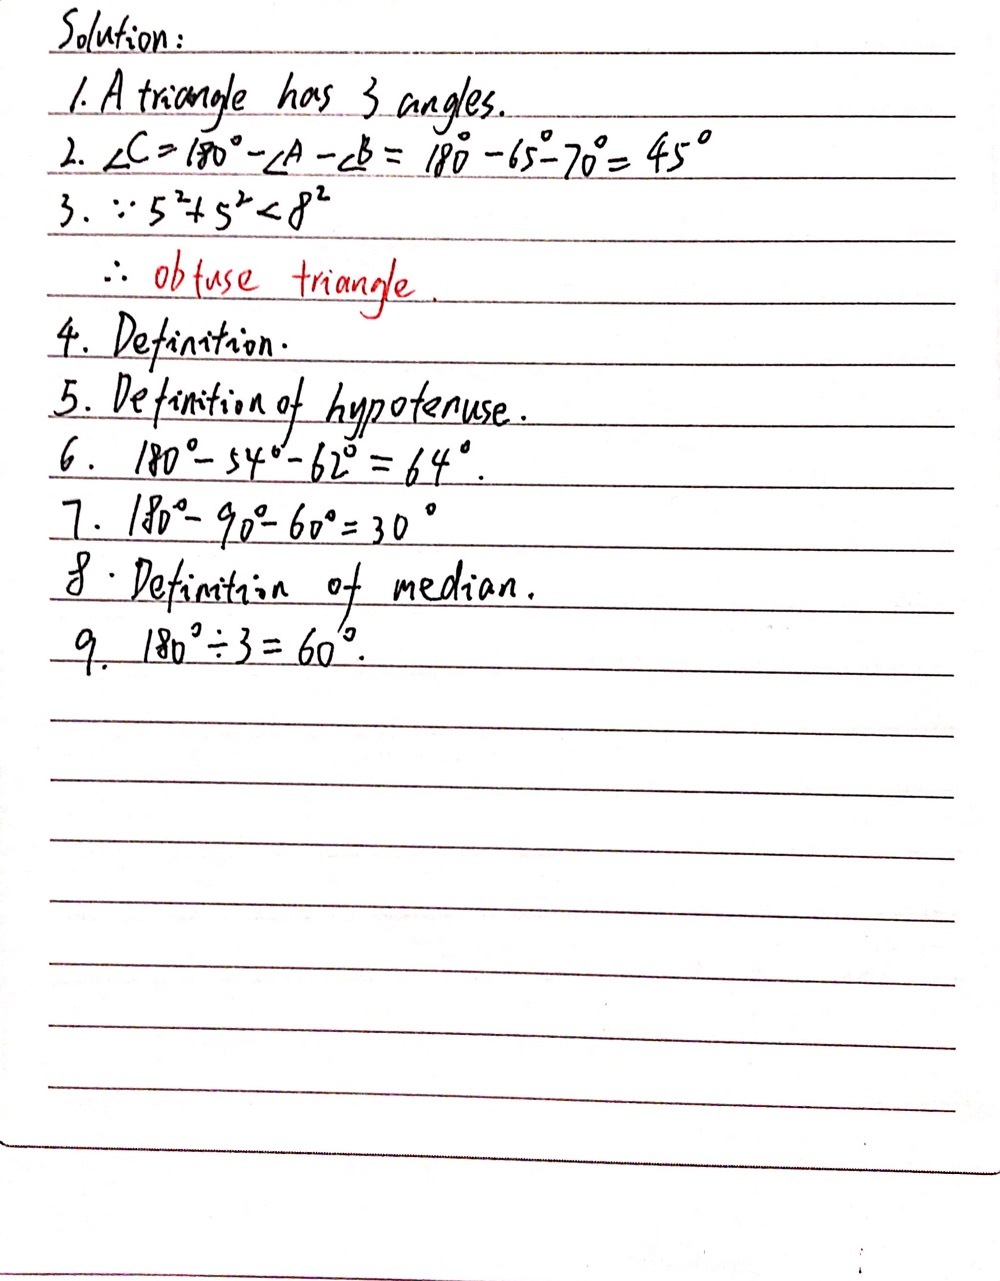 Solution:
1. A triangle has 3 angles.
2. ∠C = 180° - ∠A - ∠B = 180° - 65° - 70° = 45°
3. ∵ 5² + 5² < 8²
∴ obtuse triangle.
4. Definition.
5. Definition of hypotenuse.
6. 180° - 54° - 62° = 64°.
7. 180° - 90° - 60° = 30°
8. Definition of median.
9. 180° ÷ 3 = 60°.